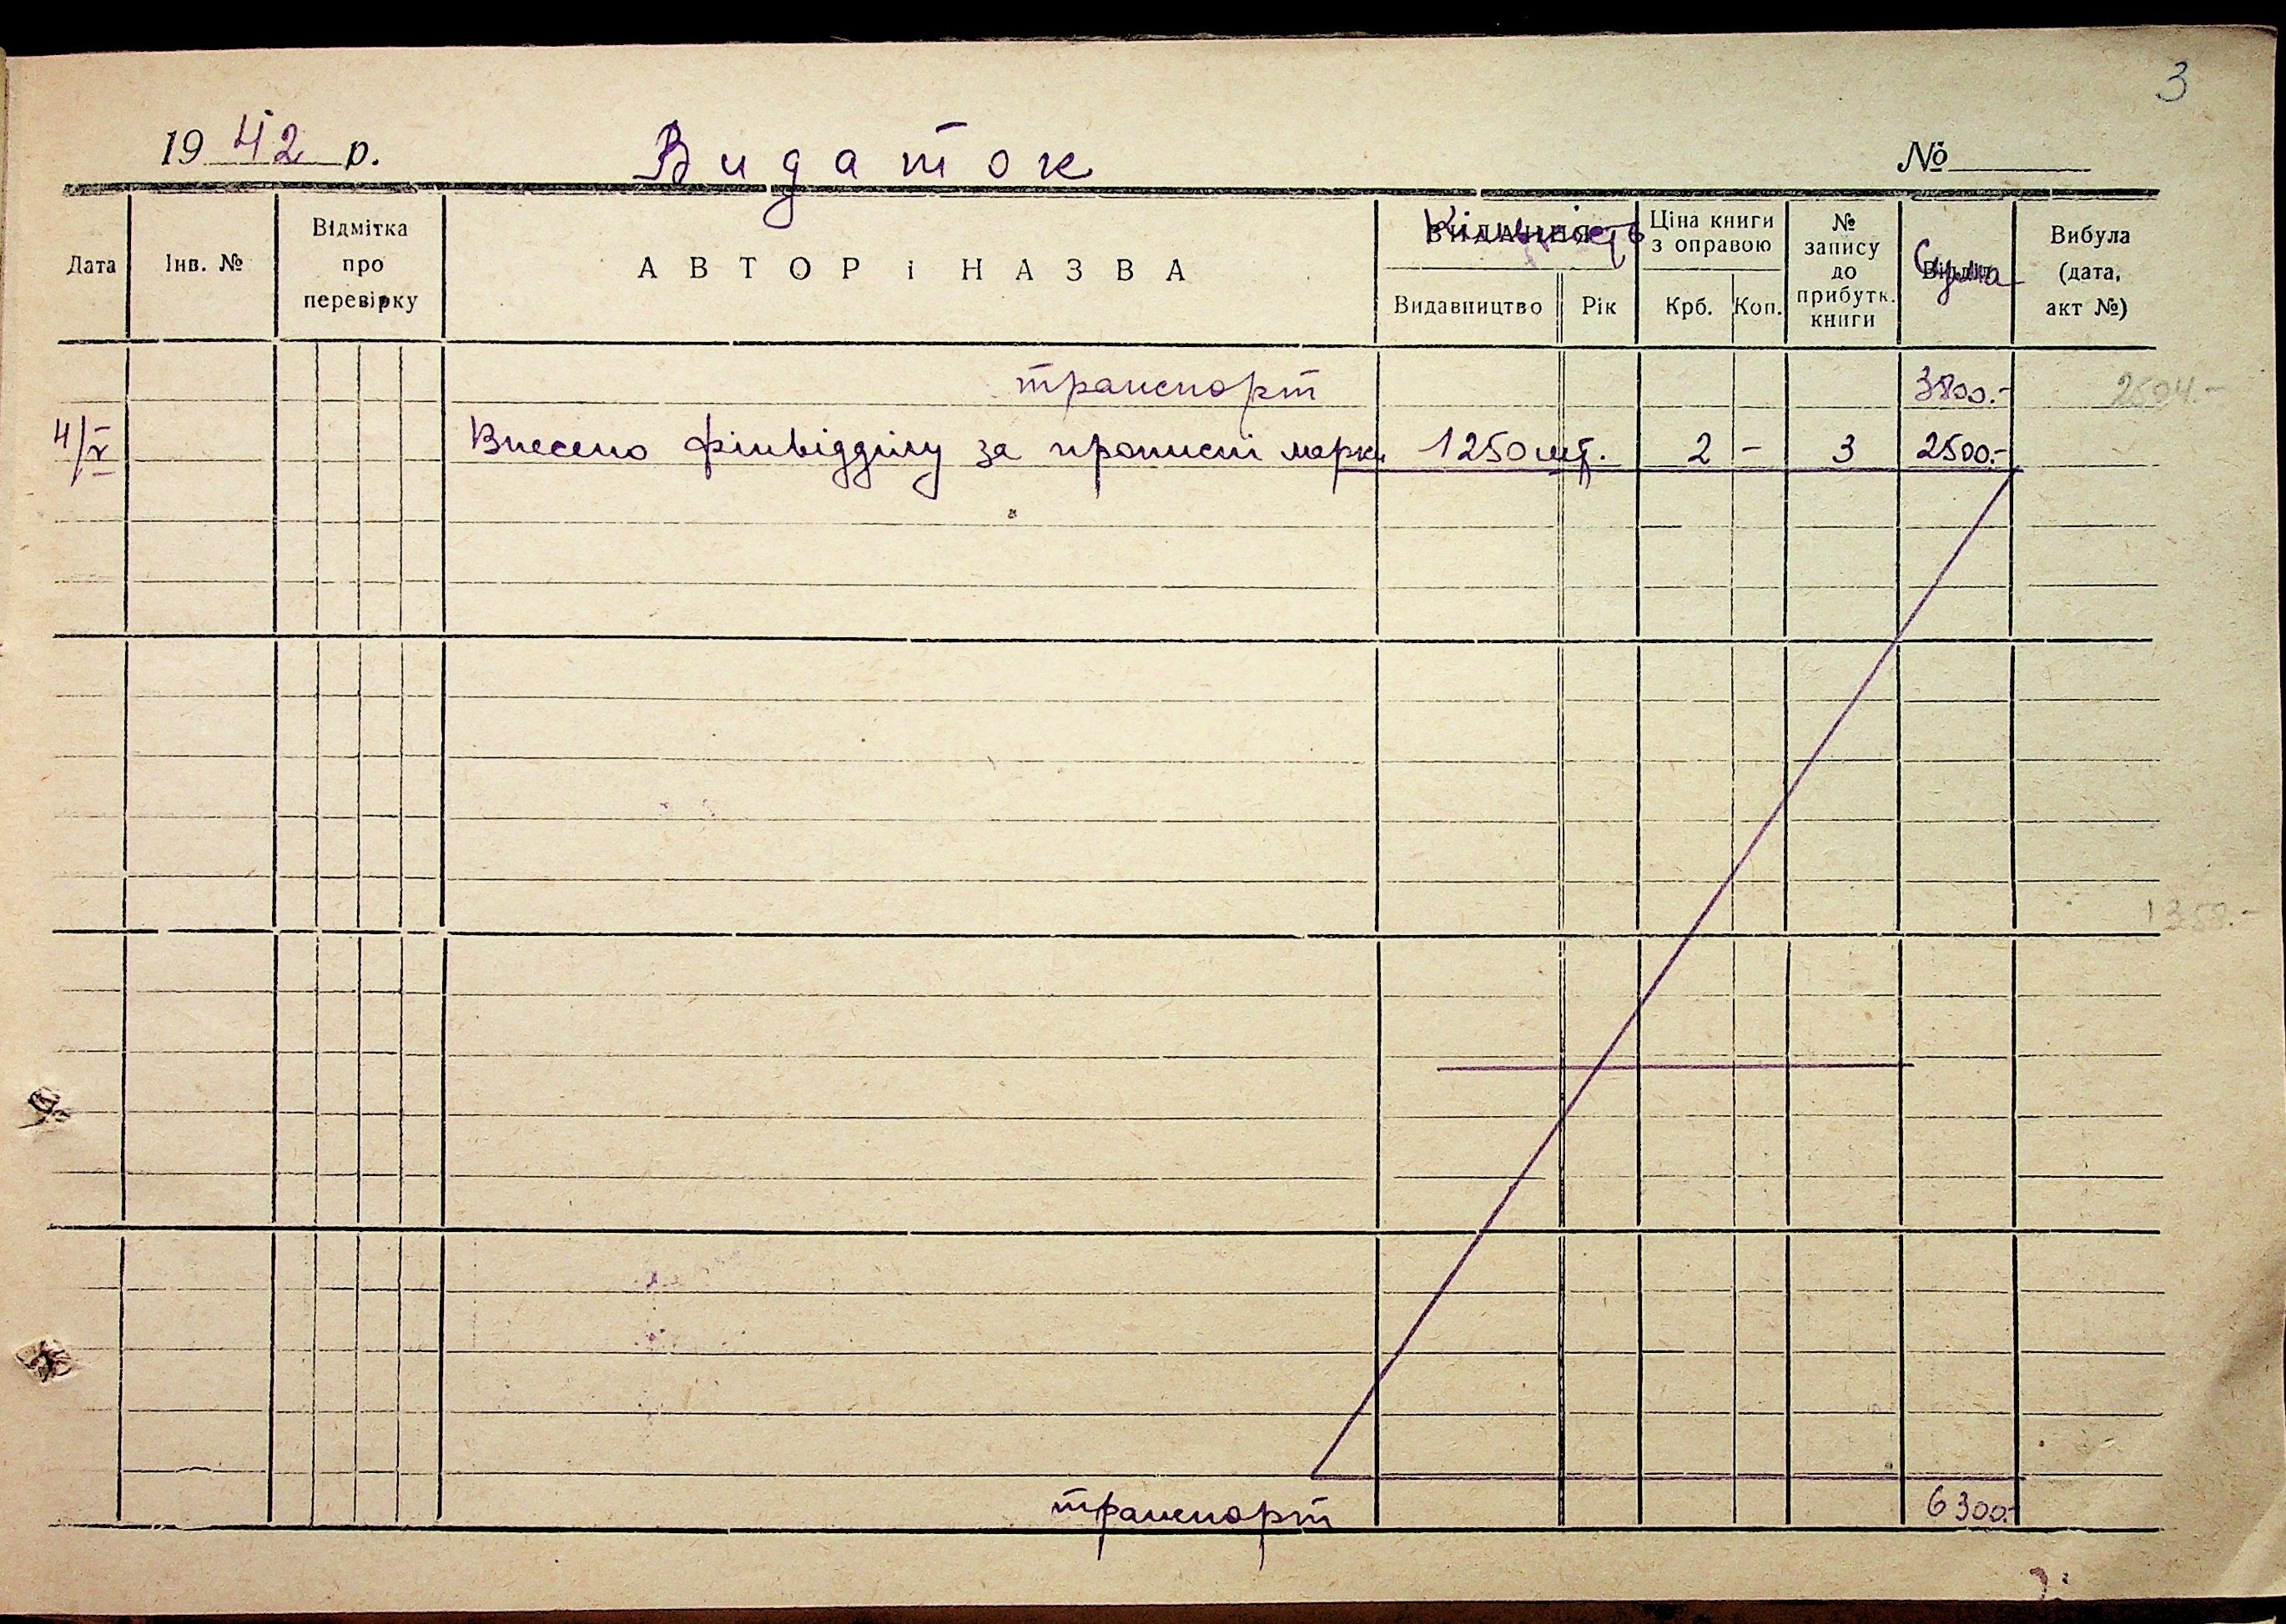 3
1942 р. Видаток №
Дата Інв. № Відмітка про перевірку АВТОР і НАЗВА ВИДАННЯ Кількість Видавництво Рік Ціна книги з оправою Крб. Коп. № запису до прибутк. книги Відділ Сума Вибула (дата, акт №)
транспорт 3800.- 2504.-
4/V Внесено фінвідділу за прописні марки 1250 шт. 2 - 3 2500.-
1358.-
транспорт 6300.-